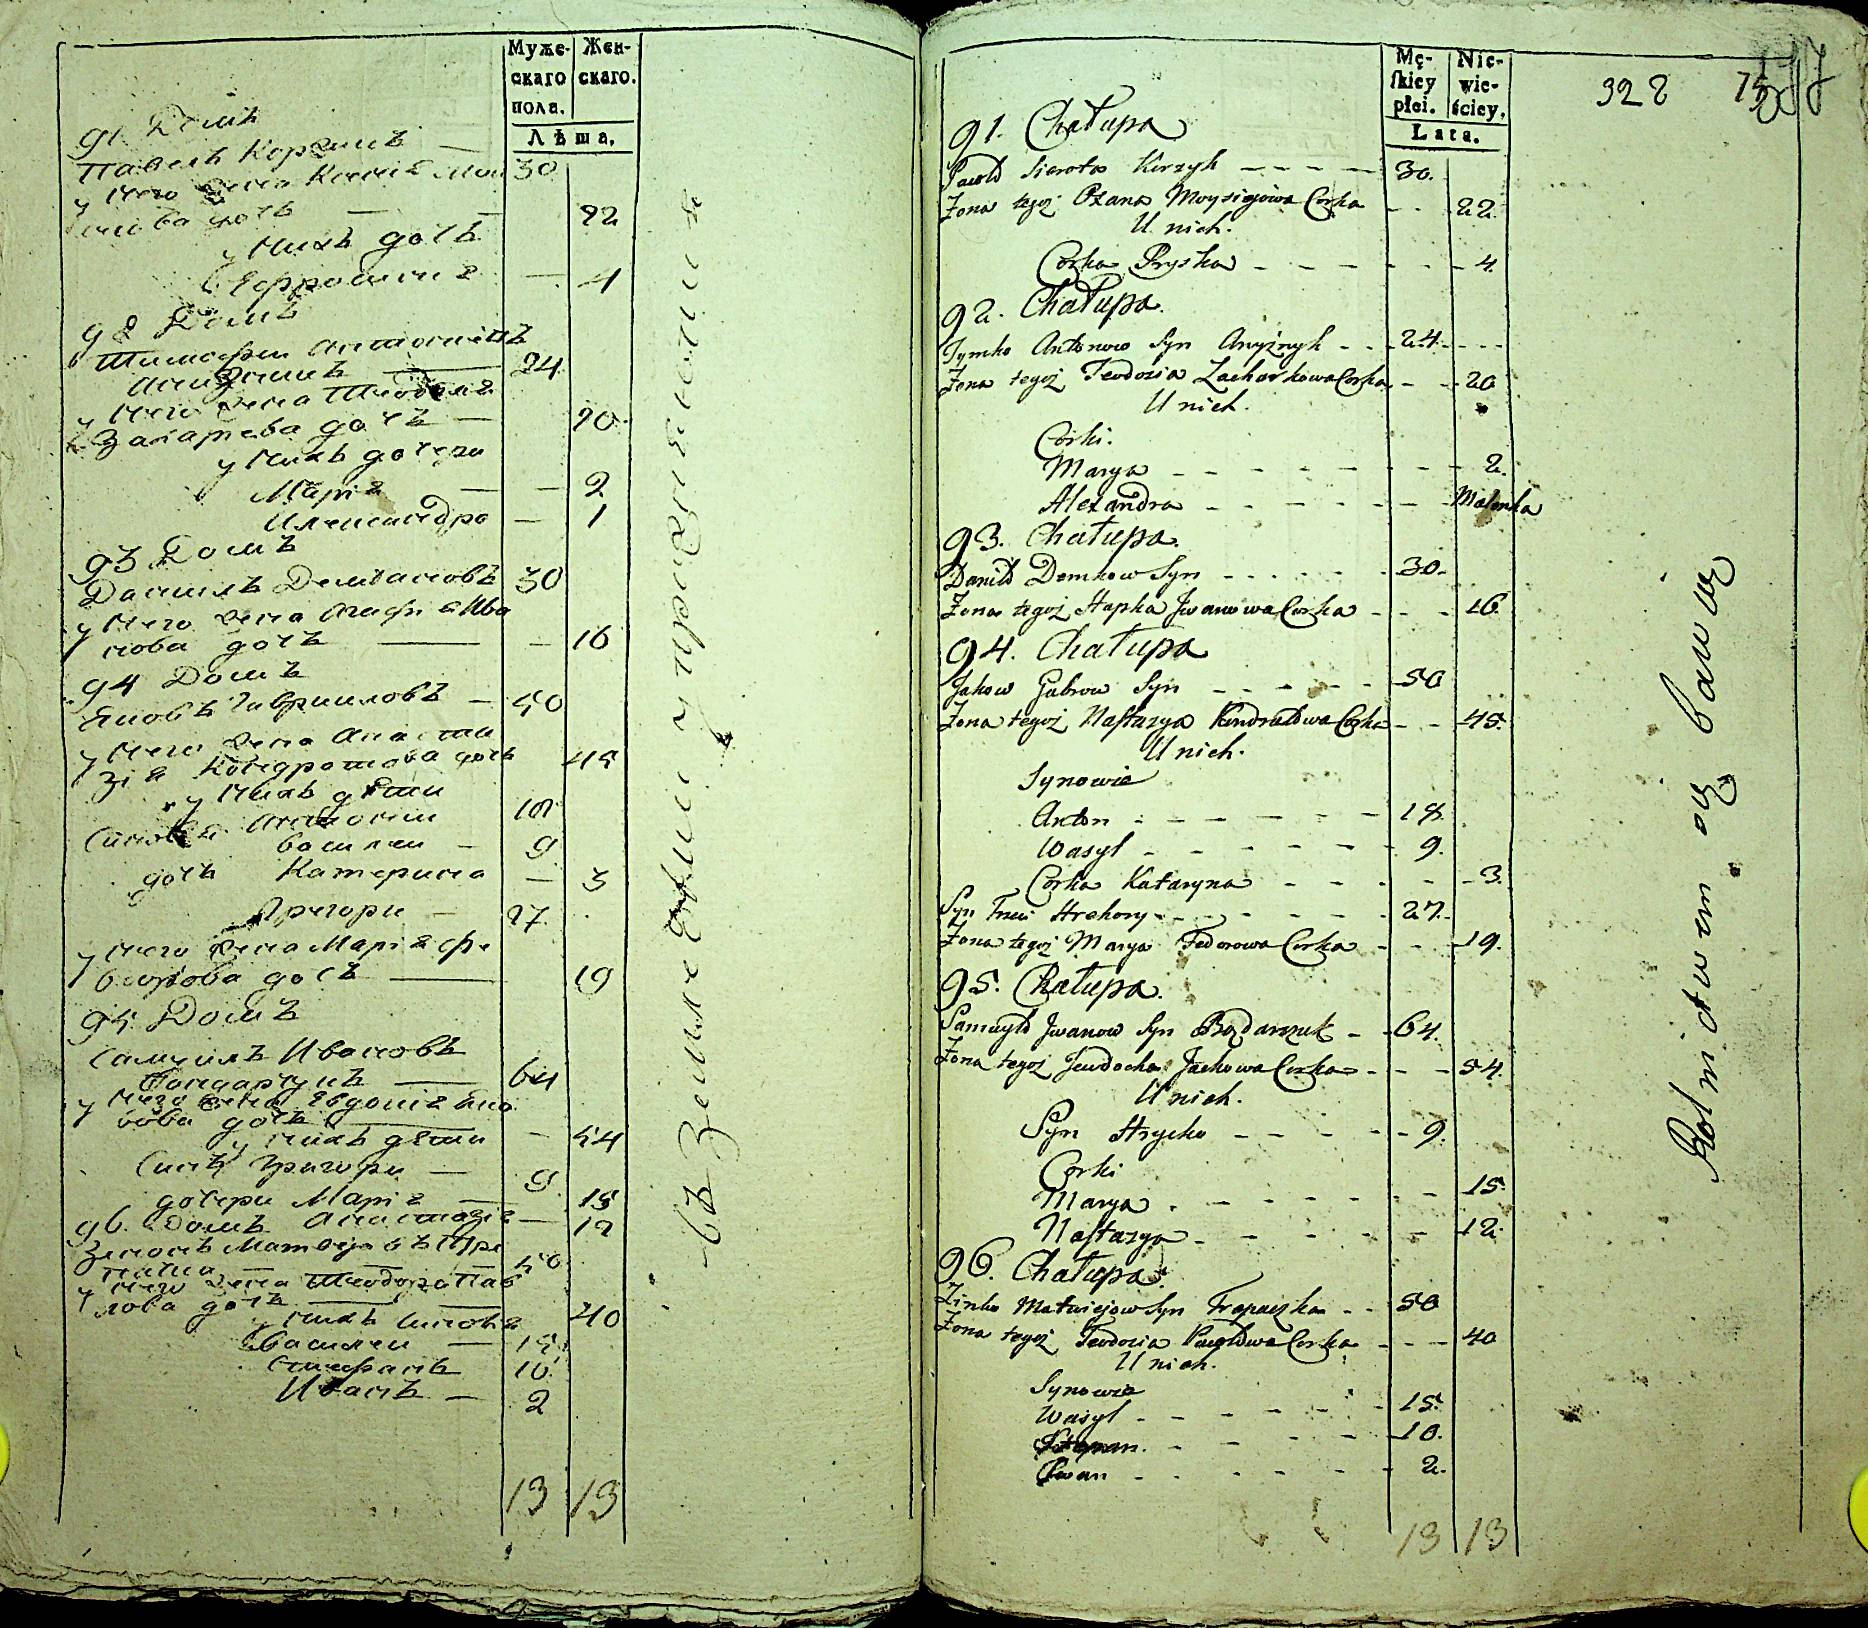 Муже-
скаго
пола.
Жен-
скаго.
Лѣта.
91 Домъ
Павелъ Корзинъ — 30
у него жена Ксенія Мои
сиова дочь — — 22
у нихъ дочь
Ефросинія — 4
92 Домъ
Тимофеи Антоновъ
24
у него жена Шеодосія
Захарıева дочь — 20
у нихъ дочери
Марія — — 2
Александра — 1
93 Домъ
Данилъ Демьяновъ 30
у него жена Агафія Ива
нова дочь — — 16
94 Домъ
Яковъ Гавриловъ — 50
у него жена Анаста
зія Кондратова дочь 45
у нихъ дѣти
Синовья Антони 18
Василеи — 9
дочь Катерина — 3
Григори — 27
у него жена Марія Фе
дорова дочь — 19
95 Домъ
Самуилъ Ивановъ
Бондарчукъ — 64
у него жена Евдокія Яко
вова дочь — 54
у нихъ дѣти
Синъ Григори — 9
дочери Марія — 15
Анастазія — 12
96. Домъ
Зинонъ Матвѣевъ
50
у него жена Шеодора Пав
лова дочь — — 40
у нихъ синовья
Василеи — 15
Стефанъ 10
Иванъ — 2
13 13
въ земледѣліи упражняются
Mę-
skiey
płci.
Nie-
wie-
ściey.
Lata.
328
91. Chałupa
Pawło Sierota Korzyk - - - - 30.
Żona tegoż Oxana Moysiejowa Corka - - 22.
U nich.
Corka Pryska - - - - - - 4.
92. Chałupa.
Tymko Antonow Syn - - 24. - - -
Żona tegoż Teodozia Zacharkowa Corka - - 20
U nich.
Corki.
Marya - - - - - - - 2.
Alexandra - - - - - - Malenka
93. Chałupa.
Daniło Demkow Syn - - - - - 30.
Żona tegoż Hapka Jwanowa Corka - - - 16.
94. Chałupa
Jakow Gabrow Syn - - - - - 50
Żona tegoż Nastazya Kondratowa Corka - - 45.
U nich.
Synowie
Anton - - - - - - 18.
Wasyl - - - - - - 9.
Corka Kataryna - - - - - 3.
Syn Trzeci Hrehory - - - - - 27.
Żona tegoż Marya Fedorowa Corka - - - 19.
95. Chałupa.
Samuyło Jwanow Syn Bondarczuk - - 64.
Żona tegoż Jewdocha Jackowa Corka - - - 54.
U nich.
Syn Hrycko - - - - - 9.
Corki
Marya - - - - - - 15.
Nastazya - - - - - - 12.
96. Chałupa.
Zinko Matwiejow Syn Trepaczka - - 50
Żona tegoż Teodozia Pawłowa Corka - - - 40
U nich.
Synowie
Wasyl - - - - - - 15.
Stepan. - - - - - 10.
Jwan - - - - - - 2.
13 13
Rolnictwem się bawią